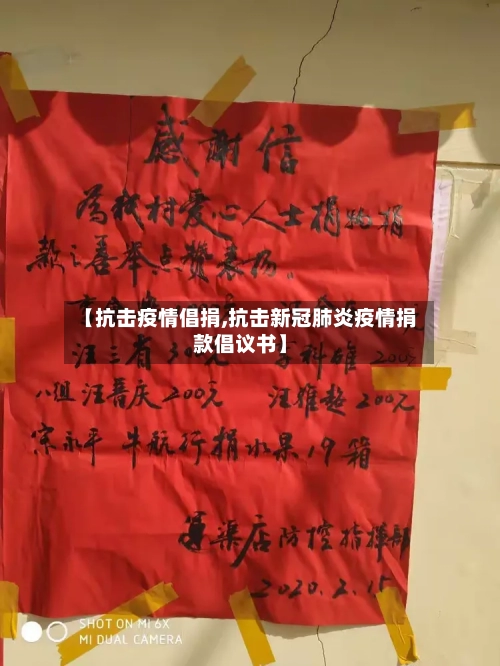 感謝信
為我村爱心人士捐物捐
款之善举点赞表扬。
【抗击疫情倡捐,抗击新冠肺炎疫情捐
款倡议书】
汪三省 300元 科雄 200元
八组 汪晋庆 200元 汪雅超 200元
宗永平 牛航行捐水果19箱
渠店防控指挥部
2020.2.15
SHOT ON MI 6X
MI DUAL CAMERA